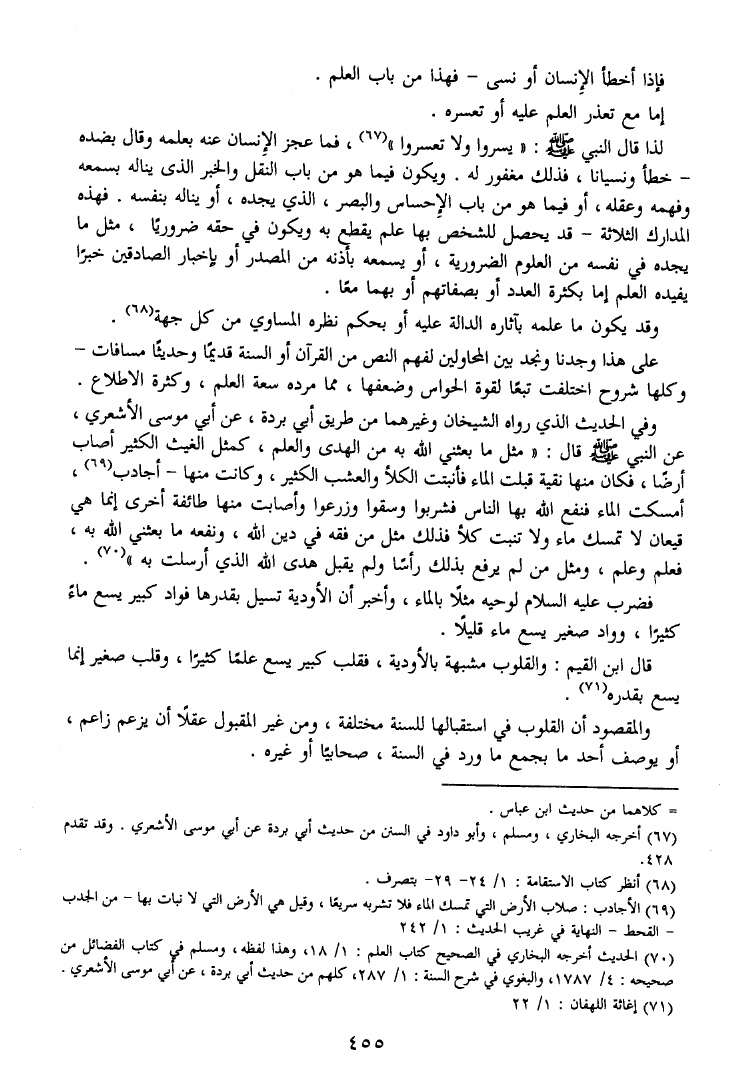 فإذا أخطأ الإنسان أو نسى – فهذا من باب العلم .
إما مع تعذر العلم عليه أو تعسره .
لذا قال النبي ﷺ : « يسروا ولا تعسروا »(٦٧) ، فما عجز الإنسان عنه بعلمه وقال بضده
– خطأ ونسيانا ، فذلك مغفور له . ويكون فيما هو من باب النقل والخبر الذى يناله بسمعه
وفهمه وعقله ، أو فيما هو من باب الإحساس والبصر ، الذي يجده ، أو يناله بنفسه . فهذه
المدارك الثلاثة – قد يحصل للشخص بها علم يقطع به ويكون في حقه ضروريًا ، مثل ما
يجده في نفسه من العلوم الضرورية ، أو يسمعه بأذنه من المصدر أو بإخبار الصادقين خبرًا
يفيده العلم إما بكثرة العدد أو بصفاتهم أو بهما معًا .
وقد يكون ما علمه بآثاره الدالة عليه أو بحكم نظره المساوي من كل جهة(٦٨) .
على هذا وجدنا ونجد بين المحاولين لفهم النص من القرآن أو السنة قديمًا وحديثًا مسافات –
وكلها شروح اختلفت تبعًا لقوة الحواس وضعفها ، مما مرده سعة العلم ، وكثرة الاطلاع .
وفي الحديث الذي رواه الشيخان وغيرهما من طريق أبي بردة ، عن أبي موسى الأشعري ،
عن النبي ﷺ قال : « مثل ما بعثني الله به من الهدى والعلم ، كمثل الغيث الكثير أصاب
أرضًا ، فكان منها نقية قبلت الماء فأنبتت الكلأ والعشب الكثير ، وكانت منها – أجادب(٦٩) ،
أمسكت الماء فنفع الله بها الناس فشربوا وسقوا وزرعوا وأصابت منها طائفة أخرى إنما هي
قيعان لا تمسك ماء ولا تنبت كلأ فذلك مثل من فقه في دين الله ، ونفعه ما بعثني الله به ،
فعلم وعلم ، ومثل من لم يرفع بذلك رأسًا ولم يقبل هدى الله الذي أرسلت به »(٧٠) .
فضرب عليه السلام لوحيه مثلًا بالماء ، وأخبر أن الأودية تسيل بقدرها فواد كبير يسع ماءً
كثيرًا ، وواد صغير يسع ماء قليلًا .
قال ابن القيم : والقلوب مشبهة بالأودية ، فقلب كبير يسع علمًا كثيرًا ، وقلب صغير إنما
يسع بقدره(٧١) .
والمقصود أن القلوب في استقبالها للسنة مختلفة ، ومن غير المقبول عقلًا أن يزعم زاعم ،
أو يوصف أحد ما بجمع ما ورد في السنة ، صحابيًا أو غيره .
= كلاهما من حديث ابن عباس .
(٦٧) أخرجه البخاري ، ومسلم ، وأبو داود في السنن من حديث أبي بردة عن أبي موسى الأشعري . وقد تقدم
٤٢٨.
(٦٨) أنظر كتاب الاستقامة : ١/ ٢٤– ٢٩– بتصرف .
(٦٩) الأجادب : صلاب الأرض التي تمسك الماء فلا تشربه سريعًا ، وقيل هي الأرض التي لا نبات بها – من الجدب
– القحط – النهاية في غريب الحديث : ١/ ٢٤٢
(٧٠) الحديث أخرجه البخاري في الصحيح كتاب العلم : ١/ ١٨، وهذا لفظه، ومسلم في كتاب الفضائل من
صحيحه : ٤/ ١٧٨٧، والبغوي في شرح السنة : ١/ ٢٨٧، كلهم من حديث أبي بردة ، عن أبي موسى الأشعري .
(٧١) إغاثة اللهفان : ١/ ٢٢
٤٥٥